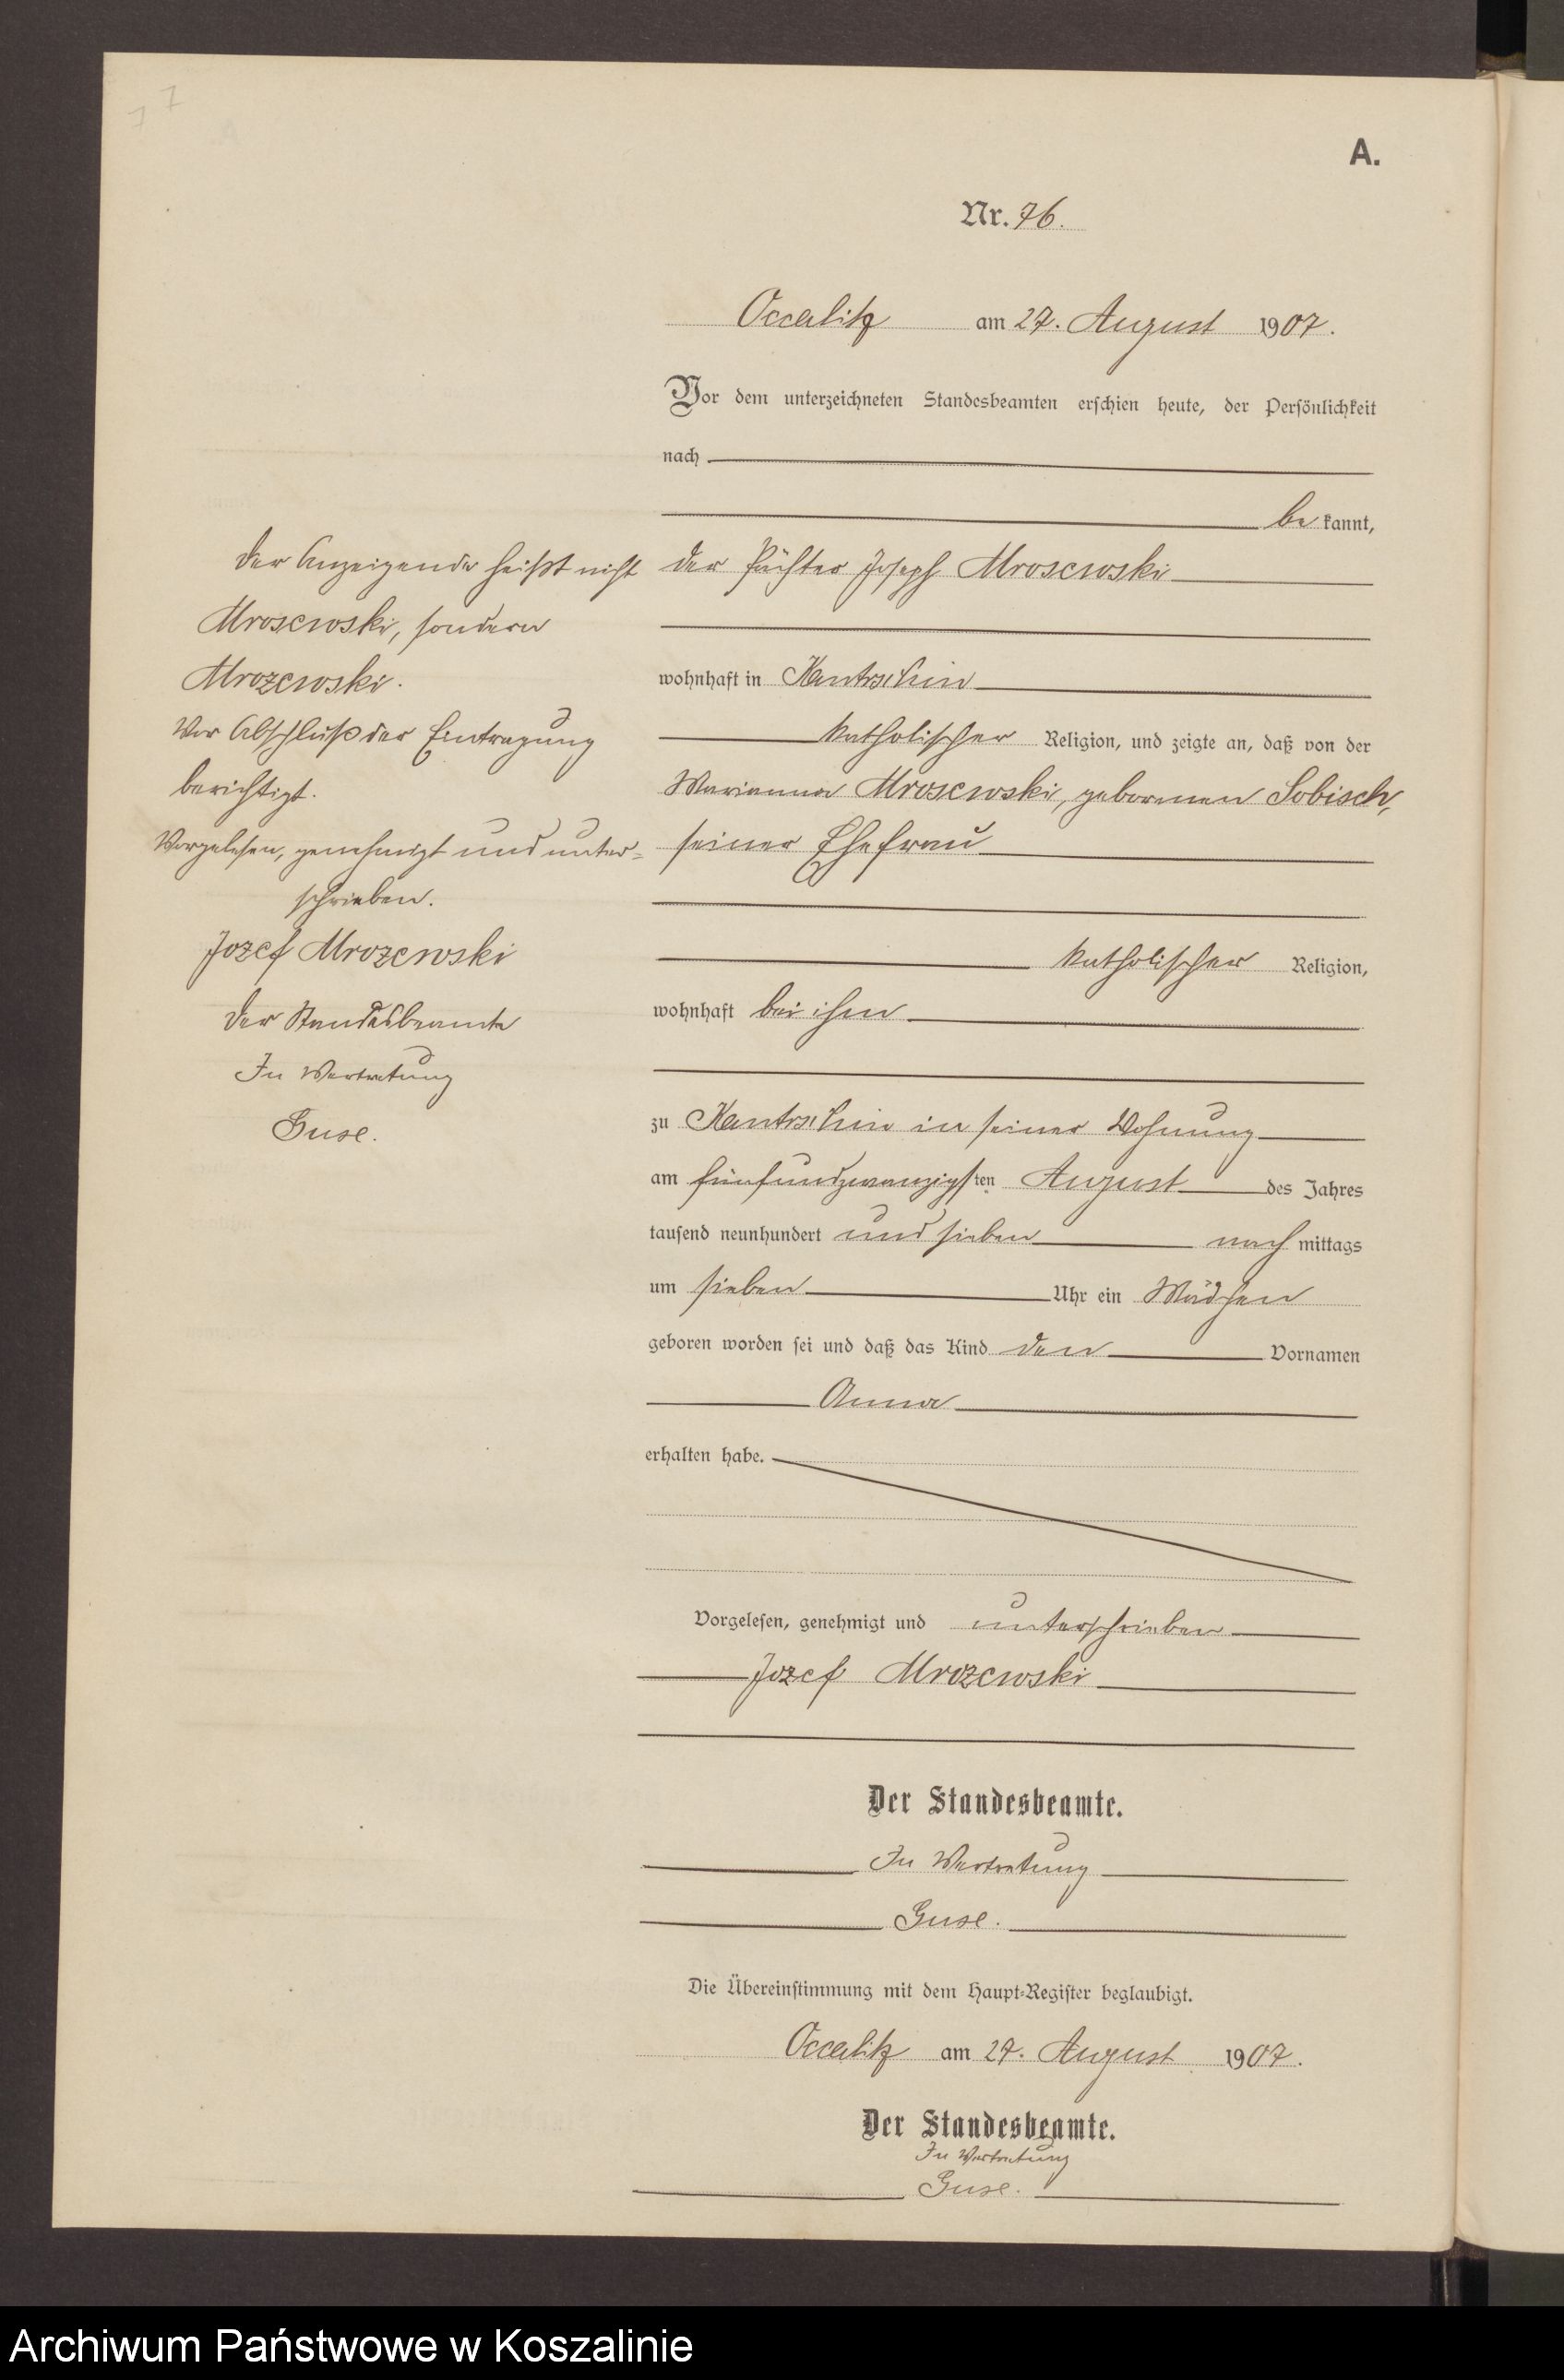 A.
Nr. 76.
Occalitz am 27. August 1907.
Vor dem unterzeichneten Standesbeamten erschien heute, der Persönlichkeit
nach
bekannt,
der Pächter Joseph Mroscwski
wohnhaft in Kantrschin
katholischer Religion, und zeigte an, daß von der
Marianna Mroscwski, gebornen Sobisch,
seiner Ehefrau
katholischer Religion,
wohnhaft bei ihm
zu Kantrschin in seiner Wohnung
am fünfundzwanzigsten August des Jahres
tausend neunhundert und sieben nachmittags
um sieben Uhr ein Mädchen
geboren worden sei und daß das Kind den Vornamen
Anna
erhalten habe.
Vorgelesen, genehmigt und unterschrieben
Jozef Mrozewski
Der Standesbeamte.
In Vertretung
Guse.
Die Übereinstimmung mit dem Haupt-Register beglaubigt.
Occalitz am 27. August 1907.
Der Standesbeamte.
In Vertretung
Guse.
Der Anzeigende heißt nicht
Mroscwski, sondern
Mrozewski.
Vor Abschluß der Eintragung
berichtigt.
Vorgelesen, genehmigt und unter-
schrieben.
Jozef Mrozewski
Der Standesbeamte
In Vertretung
Guse.
Archiwum Państwowe w Koszalinie